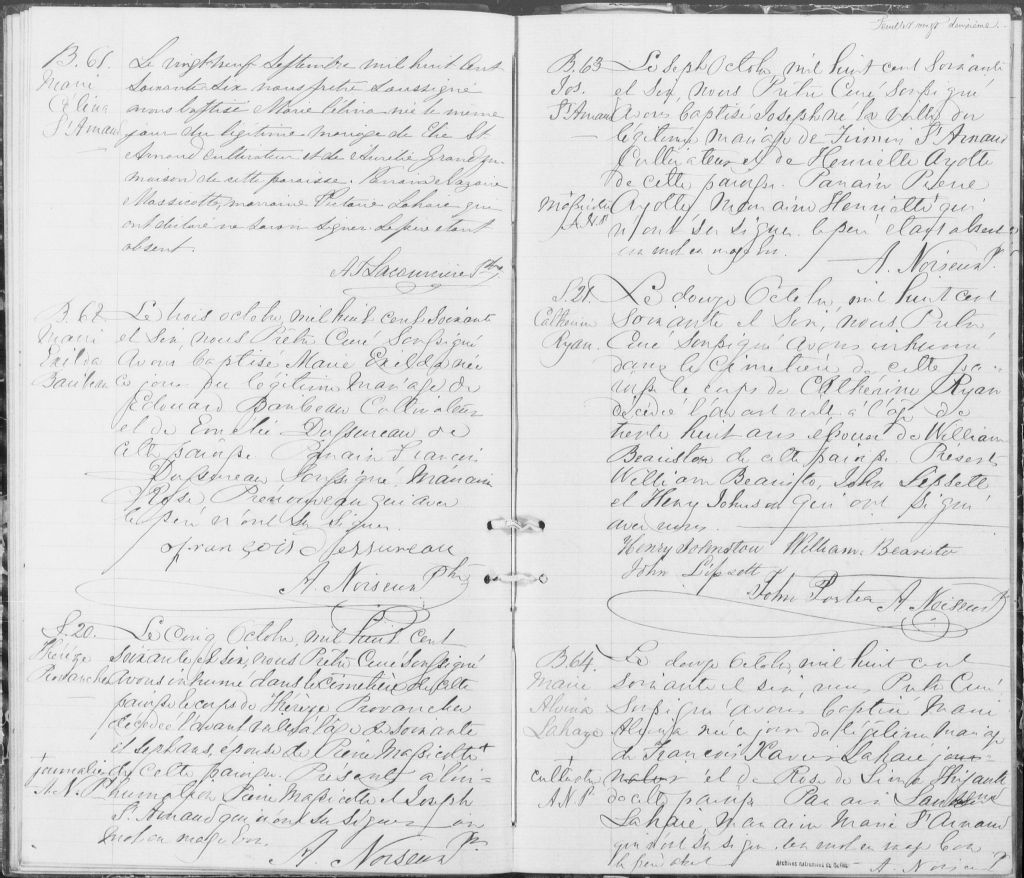 B. 61.
Marie
Célina
St Arnaud
Le vingt neuf Septembre mil huit cent
soixante six nous prêtre soussigné
avons baptisé Marie Célina née le même
jour du légitime mariage de St
Arnaud cultivateur et de Aurelie Grand
maison de cette paroisse. Parrain Nazaire
Massicotte, marraine Lahaie qui
ont déclaré ne savoir signer le père étant
absent.
Ptre
B. 62
Marie
Exilda
Baribeau
Le trois octobre, mil huit cent soixante
et six, nous Prêtre Curé soussigné
avons baptisé Marie Exilda née
ce jour du légitime mariage de
Edouard Baribeau Cultivateur
et de Emélie Dessureau de
cette paroisse Parrain François
Dessureau soussigné, Marraine
Rose qui avec
le père n'ont su signer.
françois Dessureau
A. Noiseux Ptre
S. 20.
Thérèze
Provancher
Le cinq Octobre, mil huit cent
soixante et six, nous Prêtre Curé soussigné
avons inhumé dans le cimetière de cette
paroisse le corps de Thérèze Provancher
décédée l'avant veille à l'âge de soixante
et sept ans, épouse de Pierre Massicotte +
+ journalier
A. N. P
de cette paroisse. Présents à l'in-
humation Pierre Massicotte et Joseph
St. Arnaud qui n'ont su signer. un
mot en marge bon.
A. Noiseux Ptr
Feuillet vingt deuxième.
B. 63
Jos.
St Arnaud
Le sept Octobre, mil huit cent soixante
et six, nous Prêtre Curé soussigné
avons baptisé Joseph né la veille du
légitime mariage de Firmin St Arnaud
Cultivateur et de Henriette Ayotte
de cette paroisse. Parrain Pierre
Ayotte Marraine Henriette qui
Massicotte
A. N. P
n'ont su signer. le père étant absent
un mot en marge bon.
A. Noiseux P.
S. 21.
Catherine
Ryan.
Le douze Octobre, mil huit cent
soixante et six, nous Prêtre
Curé soussigné avons inhumé
dans le cimetière de cette pa-
roisse le corps de Catherine Ryan
décédée l'avant veille à l'âge de
trente huit ans épouse de William
de cette paroisse. Présents
William John
et Henry Johnson qui ont signé
avec nous.
Henry Johnston William
John Lipsett
John Porter A. Noiseux Ptr
B. 64.
Marie
Alvina
Lahaye
Le douze Octobre, mil huit cent
soixante et six, nous Prêtre Curé
soussigné avons baptisé Marie
Alvina née ce jour du légitime mariage
de François Xavier Lahaie jour-
cultivateur
A. N. P
nalier et de Rose de Lima
de cette paroisse Parrain
Lahaie, Marraine Marie St Arnaud
qui n'ont su signer. un mot en marge bon
le père absent
A. Noiseux P
Archives nationales du Québec